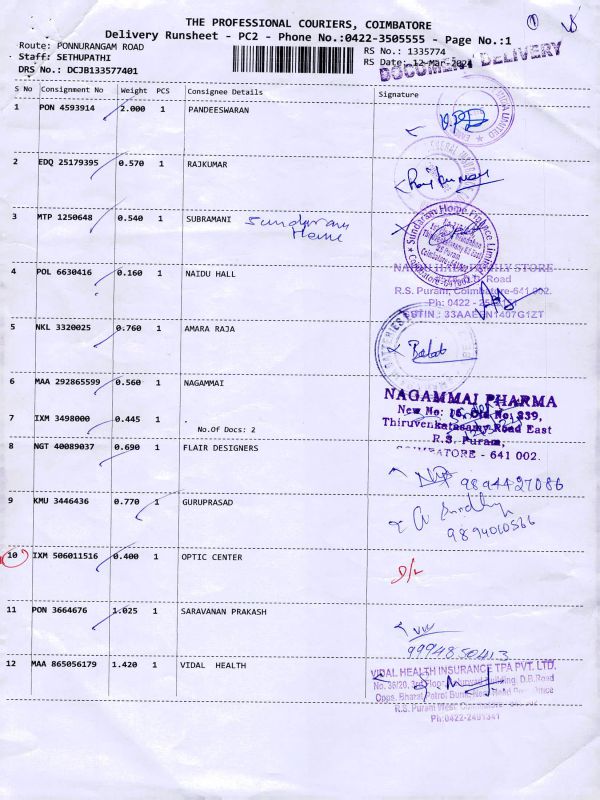 THE PROFESSIONAL COURIERS, COIMBATORE
Delivery Runsheet - PC2 - Phone No.:0422-3505555 - Page No.:1
Route: PONNURANGAM ROAD
RS No.: 1335774
Staff: SETHUPATHI
RS Date: 12-Mar-2024
DRS No.: DCJB133577401
DOCUMENT DELIVERY
S No Consignment No Weight PCS Consignee Details Signature
1 PON 4593914 2.000 1 PANDEESWARAN
2 EDQ 25179395 0.570 1 RAJKUMAR
Rajkumar
3 MTP 1250648 0.540 1 SUBRAMANI Sundaram
Home
Sundaram Home Finance Limited
4 POL 6630416 0.160 1 NAIDU HALL
NAIDU HALL FAMILY STORE
Road
R.S. Puram, Coimbatore-641 002.
Ph: 0422 -
GSTIN : 33AAEFN1407G1ZT
5 NKL 3320025 0.760 1 AMARA RAJA
6 MAA 292865599 0.560 1 NAGAMMAI
NAGAMMAI PHARMA
New No: 16, Old No: 239,
Thiruvenkatasamy Road East
R.S. Puram,
COIMBATORE - 641 002.
7 IXM 3498000 0.445 1
No.Of Docs: 2
8 NGT 40089037 0.690 1 FLAIR DESIGNERS
9894427086
9 KMU 3446436 0.770 1 GURUPRASAD
9894010566
10 IXM 506011516 0.400 1 OPTIC CENTER
D/L
11 PON 3664676 1.025 1 SARAVANAN PRAKASH
9994850413
12 MAA 865056179 1.420 1 VIDAL HEALTH
VIDAL HEALTH INSURANCE TPA PVT. LTD.
No. 36/20, 3rd Floor, Building, D.B.Road
Opps. Bharat Petrol Bunk, Near Head Post Office
R.S. Puram West, Coimbatore
Ph:0422-2491341